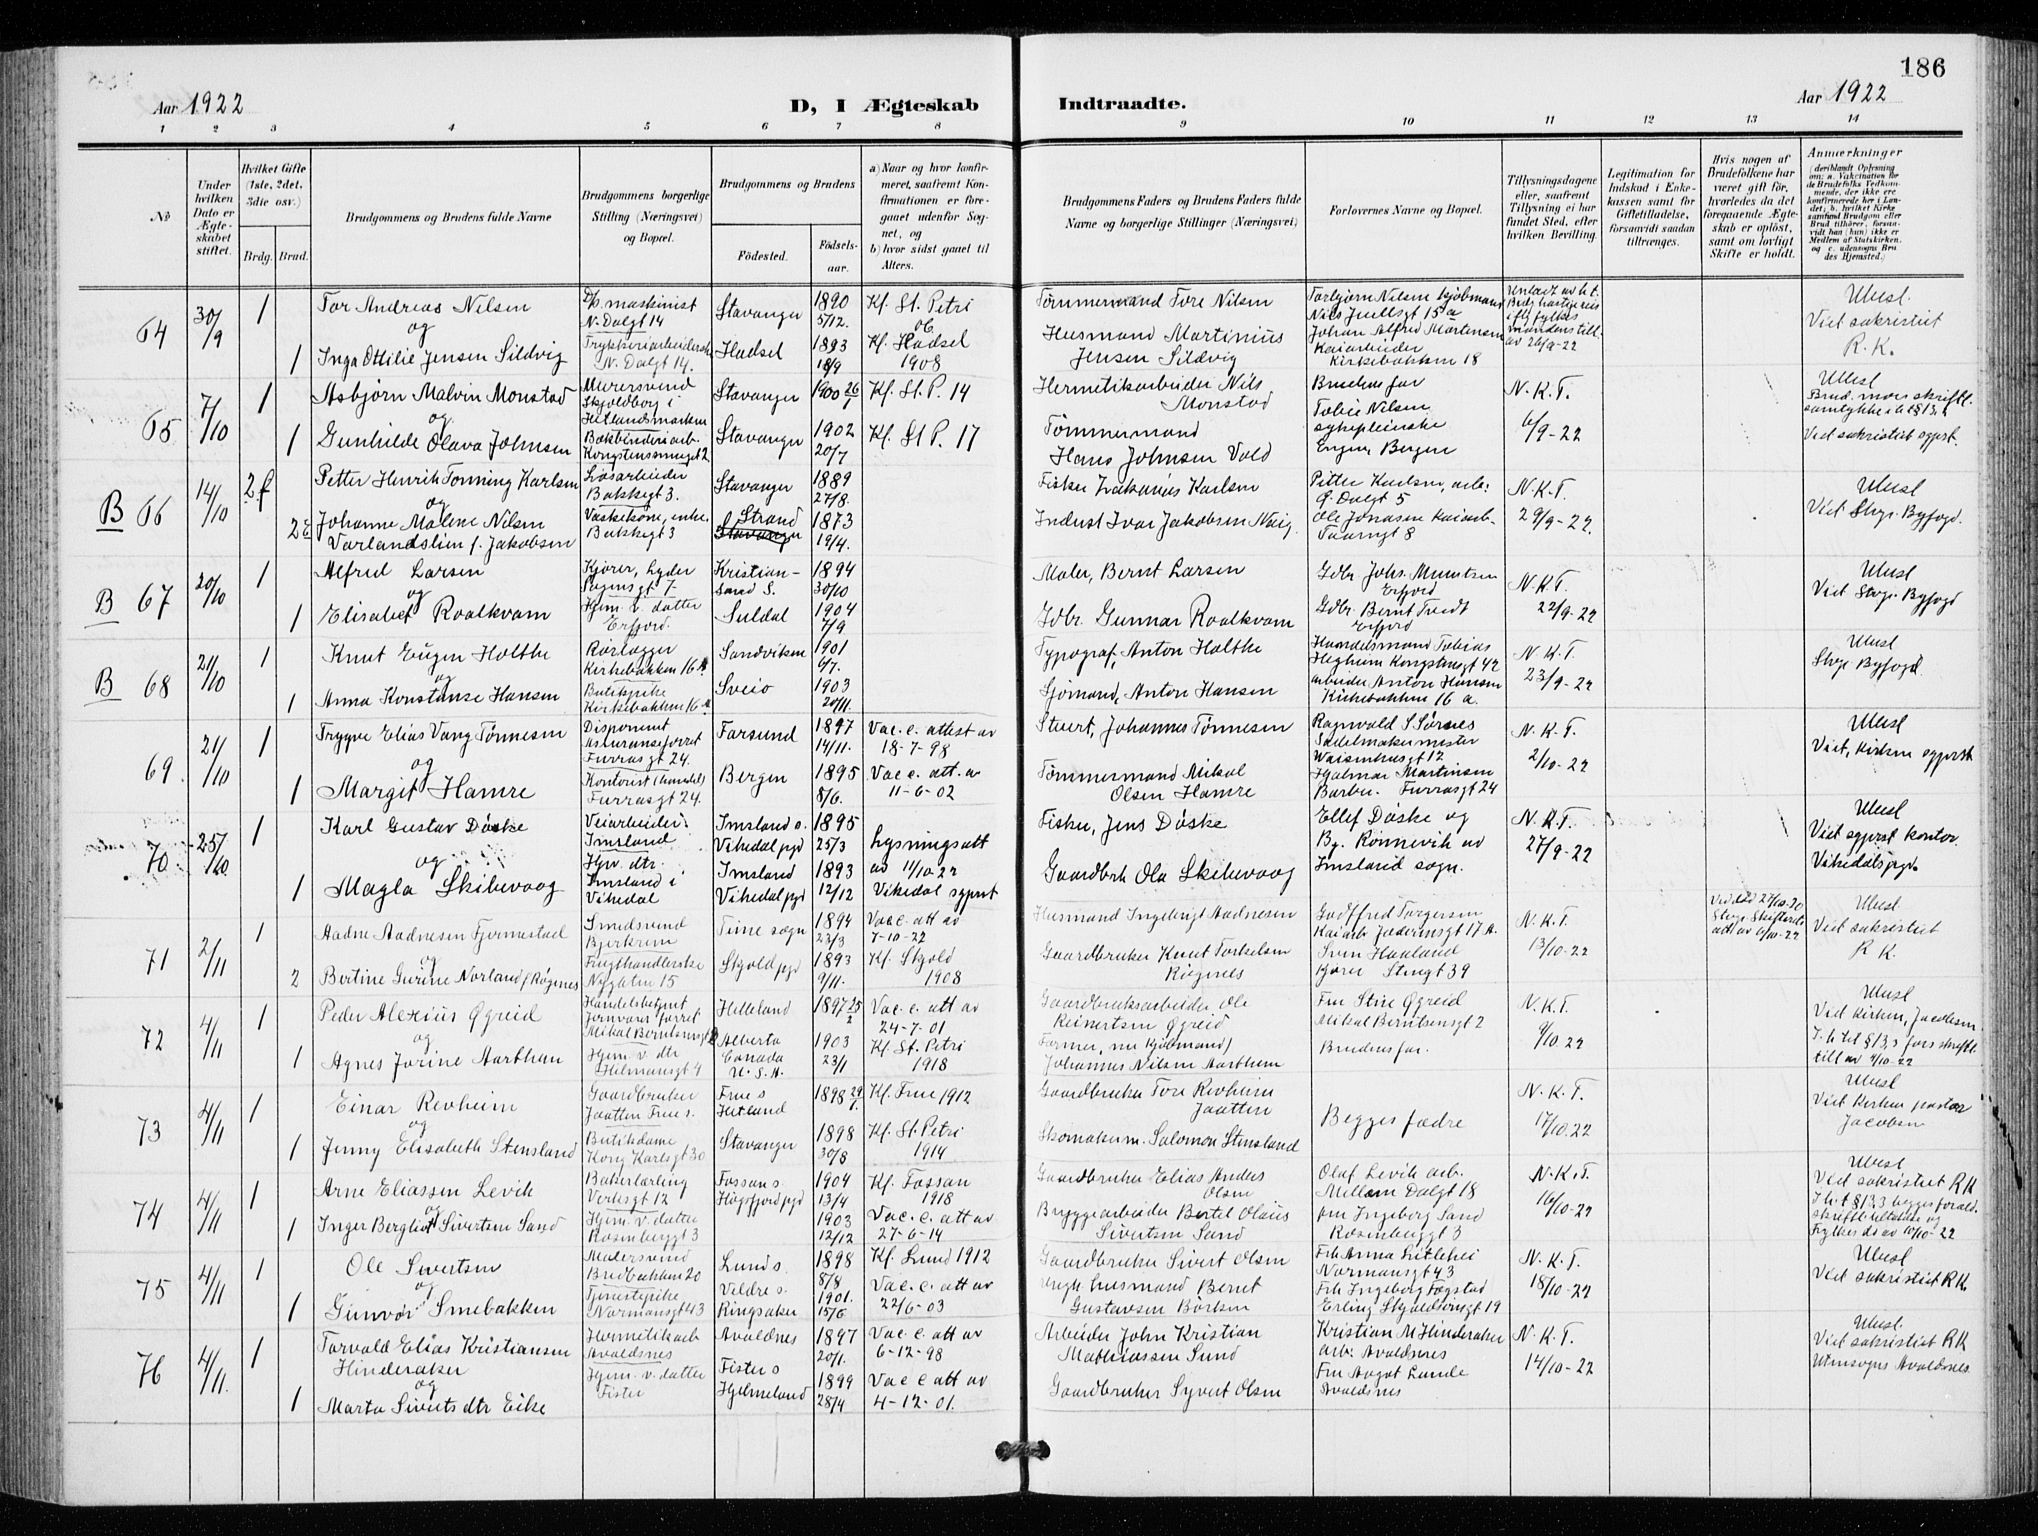 186
Aar 1922
D, I Ægteskab
Indtraadte.
Aar 1922
1 2 3 4 5 6 7 8 9 10 11 12 13 14
№
Under hvilken Dato er Ægteskabet stiftet.
Hvilket Gifte (1ste, 2det, 3die osv.)
Brdg. Brud.
Brudgommens og Brudens fulde Navne
Brudgommens borgerlige Stilling (Næringsvei) og Bopæl.
Brudgommens og Brudens
Fødested.
Fødselsaar.
a) Naar og hvor konfirmeret, saafremt Konfirmationen er foregaaet udenfor Sognet, og
b) hvor sidst gaaet til Alters.
Brudgommens Faders og Brudens Faders fulde Navne og borgerlige Stillinger (Næringsvei)
Forlovernes Navne og Bopæl.
Tillysningsdagene eller, saafremt Tillysning ei har fundet Sted, efter hvilken Bevilling.
Legitimation for Indskud i Enkekassen samt for Giftetilladelse, forsaavidt saadan tiltrænges.
Hvis nogen af Brudefolkene har været gift før, hvorledes da det foregaaende Ægteskab er opløst, samt om lovligt Skifte er holdt.
Anmerkninger
64 30/9 1
Tor Andreas Nilsen
og
1 Inga Ottilie Jensen Sildvig
Dp. maskinist
N. Dalgt 14
N. Dalgt 14.
Stavanger
Hadsel
1890 5/12.
1893 18/9
Kf. St. Petri
og
Kf. Hadsel
1908
Tømmermand Tore Nilsen
Husmand Martinius
Jensen Sildvig
Torbjørn Nilsen kjøbmand
Nils Juelsgt 15 a
Johan Alfred Martensen
Kaiarbeider
Kirkebakken 18
av 26/9-22
Ubesl.
Viet sakristiet
R. K.
65 7/10 1
Asbjørn Malvin Monstad
og
1 Gunhilde Olava Johnsen
Murersvend
Skjoldborg i
Hetlandsmarken
Bokbinderiarb.
Kongstenssmuget 2
Stavanger
Stavanger
1900 26/1
1902 20/7
Kf. St. P. 14
Kf. St P. 17
Hermetikarbeider Nils
Monstad
Tømmermand
Hans Johnsen Vold
Brudens far
Tobie Nilsen
sykepleierske
Bergen
N. K. T.
6/9-22
Ubesl
Brud. mors skriftl.
Ved sakristiet sgprst.
B 66 14/10 2 f
Petter Henrik Tonning Karlsen
og
2 E Johanne Malene Nilsen
Varlandslien f. Jakobsen
Løsarbeider
Bakkegt 3.
Vaskekone, enke.
Bakkegt 3
Stavanger
Strand
Stavanger
1889 27/8.
1873 19/4.
Fisker Zakarias Karlsen
Indust Ivar Jakobsen Nag
Petter Karlsen, arb:
Ø. Dalgt 5
Ole Jonasen kaiarb-
Taarngt 8
N. K. T.
29/9-22.
Ubesl
Viet Stvgr. Byfogd.
B 67 20/10 1
Alfred Larsen
og
1 Elisabet Roalkvam
Kjører, Lyder
Sagens gt 7
Hjem. v. datter
Erfjord.
Kristian-
sand S.
Suldal
1894 30/10
1904 7/9
Maler, Bernt Larsen
Gdbr. Gunnar Roalkvam
Gdbr. Johs. Munitsen
Erfjord
Gdbr. Bernt Tveit
Erfjord
N. K. T.
22/9-22
Ubesl
Viet Stvgr Byfogd
B 68 21/10 1
Knut Eugen Holthe
og
1 Anna Konstanse Hansen
Rørlegger
Kirkebakken 16 A
Butikpike
Kirkebakken 16 A
Sandviken
Sveio
1901 6/7.
1903 20/11.
Typograf, Anton Holthe
Sjømand, Anton Hansen
Handelsmand Tobias
Hegheim Kongstensgt 42
arbeider Anton Hansen
Kirkebakken 16 a.
N. K. T.
23/9-22
Ubesl
Stvgr Byfogd.
69. 21/10 1
Trygve Elias Vang Tønnesen
og
1 Margit Hamre
Disponent
Assuranseforret
Furrasgt 24.
Kontorist (handel)
Furrasgt 24.
Farsund
Bergen
1897 14/11.
1895 8/6.
Vac. c. attest av
18-7-98
Vac c. att. av
11-6-02
Stuert, Johannes Tønnesen
Tømmermand Mikal
Olsen Hamre
Ragnvald S. Sørnes
Sadelmakermester
Waisenhusgt 12
Hjalmar Martinsen
Barber. Furrasgt 24
N. K. T.
2/10-22
Ubesl
Viet, kirken sgprst
70 25/10 1
Karl Gustav Døske
og
1 Magla Skibevaag
Veiarbeider.
Imsland
Hjv. dtr.
Imsland i
Vikedal
Imsland s.
Vikedal pgd
Imsland
Vikedal pgd
1895 25/3
1893 12/12
Lysningsatt
av 11/10-22
Vikedal sgprst
Fisker, Jens Døske
Gaardbrk Ola Skibevaag
Ellef Døske og
By. Rønnevik av
Imsland sogn.
N. K. T.
27/9-22
Ubesl
Viet sgprst kontor
Vikedal pgd.
71 2/11 1
Aadne Aadnesen Fjermestad
og
2 Bertine Gurine Norland f Røgenes
Smedsvend
Bjerkrem
Frugthandlerske
Nygaten 15
Time sogn
Skjold pgd
1894 23/3
1893 9/11.
Vac c. att av
7-10-22
Kf. Skjold
1908
Husmand Ingebrigt Aadnesen
Gaardbruker Knut Torkelsen
Røgenes
Godtfred Torgersen
Kaiarb Jæderensgt 17 A.
Sven Haaland
kjører Stengt 39
N. K. T.
13/10-22
Ved død 27/10-20
Stvgr. Skifteret
att av 6/10-22
Ubesl
Viet sakristiet
R K.
72 4/11 1
Peder Alexius Øgreid
og
1 Agnes Jorine Aarthun
Handelsbetjent
Jernvareforret
Mikal Berntsensgt 2
Hjem. v. dtr
Helmersgt 4
Helleland
Alberta
Canada
U. S. A.
1897 25/2
1903 23/1
Vac. c. att av
24-7-01
Kf. St. Petri
1918
Gaardbruksarbeider Ole
Reinertsen Øgreid
Farmer, nu kjøbmand
Johannes Nilsen Aarthun
Fru Stine Øgreid
Mikal Berntsensgt 2
Brudens far.
N. K. T.
9/10-22
Ubesl
Viet kirken, Jacobsen
I. h. til § 13,3 fars skriftl.
till av 7/10-22
73 4/11 1
Einar Revheim
og
1 Jenny Elisabeth Stensland
Gaardbruker
Jaatten Frue s.
Butikdame
Kong Karlsgt 30
Frue s
Hetland
Stavanger
1898 29/1.
1898 30/8
Kf. Frue 1912
Kf. St. Petri
1914
Gaardbruker Tore Revheim
Jaatten
Skomakerm. Salomon Stensland
Begges fædre
N. K. T.
17/10.22
Ubesl
Viet kirken pastor
Jacobsen
74 4/11 1
Arne Eliassen Levik
og
1 Inger Bergliot Sivertsen Sand
Bakerlærling
Verksgt 12
Hjem. v. datter
Rosenberggt 3
Fossan s.
Høgsfjord pgd
1904 13/4
1903 12/12
Kf. Fossan
1918
Vac. c. att av
27-6-14
Gaardbruker Elias Andos
Olsen
Bryggearbeider Bertel Olaus
Sivertsen Sand
Olaf Levik arb.
Mellem Dalgt 18
fru Ingeborg Sand
Rosenberggt 3
N. K. T.
16/10-22
Ubesl
Viet sakristiet RK
I h. t § 13,3 begges forald.
skriftl. tilladelse og
Fylkes ds av 10/10-22
75 4/11 1
Ole Sivertsen
og
1 Gunvor Smebakken
Malersvend
Bredbakken 20
Tjenestepike
Normansgt 43
Lund s.
Veldre s.
Ringsaker
1898 8/8
1901. 15/6
Kf. Lund 1912
Vac. c. att av
22/6-03
Gaardbruker Sivert Olsen
husmand Bernt
Gustavsen Børksen
Frk Anna Litlehei
Normansgt 43
Frk Ingeborg Fægstad
Erling Skjalgsonsgt 19
N. K. T.
18/10-22
Ubesl
Viet sakristiet RK.
76 4/11. 1
Torvald Elias Kristiansen
Hinderaker
og
1 Marta Siverts dtr Eike
Hermetikarb
Avaldsnes
Hjem. v. datter
Fister
Avaldnes
Fister s
Hjelmeland
1897 20/1.
1899 28/4
Vac. c. att av
6-12-98
Vac c att av
4-12-01.
Arbeider John Kristian
Mathiassen Sund
Gaardbruker Syvert Olsen
Kristian M Hinderaker
arb. Avaldsnes
Fru Aagot Lunde
Avaldsnes
N. K. T.
14/10-22
Ubesl.
Viet sakristiet RK
Utensogns Avaldsnes